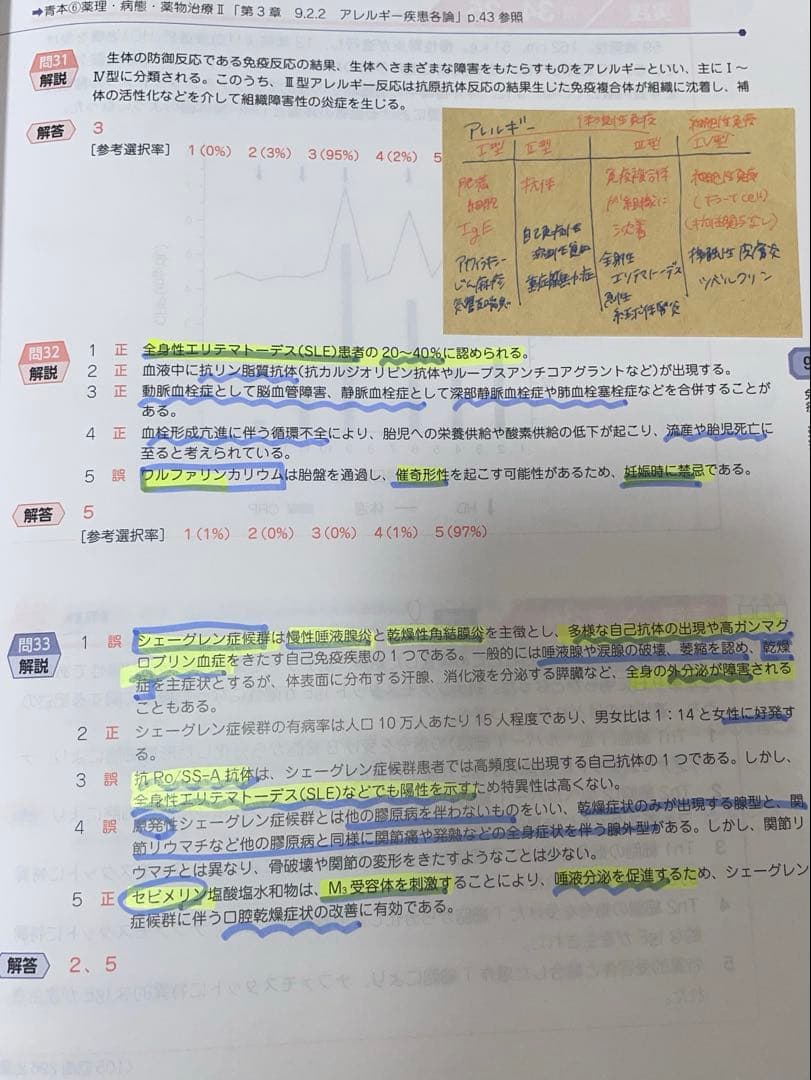 ➡青本⑥薬理・病態・薬物治療Ⅱ「第3章 9.2.2 アレルギー疾患各論」p.43参照
問31 解説
生体の防御反応である免疫反応の結果、生体へさまざまな障害をもたらすものをアレルギーといい、主にⅠ～
Ⅳ型に分類される。このうち、Ⅲ型アレルギー反応は抗原抗体反応の結果生じた免疫複合体が組織に沈着し、補
体の活性化などを介して組織障害性の炎症を生じる。
解答 3
[参考選択率] 1(0%) 2(3%) 3(95%) 4(2%) 5
アレルギー 体液性免疫 細胞性免疫
Ⅰ型 Ⅱ型 Ⅲ型 Ⅳ型
肥満 抗体 免疫複合体 細胞性免疫
細胞 が組織に (キラーTcell)
IgE 沈着 (抗体関与なし)
自己免疫性
溶血性貧血
重症筋無力症
アナフィラキシー
じん麻疹
気管支喘息
全身性
エリテマトーデス
急性
糸球体腎炎
接触性皮膚炎
ツベルクリン
問32 解説
1 正 全身性エリテマトーデス(SLE)患者の20～40%に認められる。
2 正 血液中に抗リン脂質抗体(抗カルジオリピン抗体やループスアンチコアグラントなど)が出現する。
3 正 動脈血栓症として脳血管障害、静脈血栓症として深部静脈血栓症や肺血栓塞栓症などを合併することが
ある。
4 正 血栓形成亢進に伴う循環不全により、胎児への栄養供給や酸素供給の低下が起こり、流産や胎児死亡に
至ると考えられている。
5 誤 ワルファリンカリウムは胎盤を通過し、催奇形性を起こす可能性があるため、妊娠時に禁忌である。
解答 5
[参考選択率] 1(1%) 2(0%) 3(0%) 4(1%) 5(97%)
問33 解説
1 誤 シェーグレン症候群は慢性唾液腺炎と乾燥性角結膜炎を主徴とし、多様な自己抗体の出現や高ガンマグ
ロブリン血症をきたす自己免疫疾患の1つである。一般的には唾液腺や涙腺の破壊、萎縮を認め、乾燥
症を主症状とするが、体表面に分布する汗腺、消化液を分泌する膵臓など、全身の外分泌が障害される
こともある。
2 正 シェーグレン症候群の有病率は人口10万人あたり15人程度であり、男女比は1：14と女性に好発す
る。
3 誤 抗Ro/SS-A抗体は、シェーグレン症候群患者では高頻度に出現する自己抗体の1つである。しかし、
全身性エリテマトーデス(SLE)などでも陽性を示すため特異性は高くない。
4 誤 原発性シェーグレン症候群とは他の膠原病を伴わないものをいい、乾燥症状のみが出現する腺型と、関
節リウマチなど他の膠原病と同様に関節痛や発熱などの全身症状を伴う腺外型がある。しかし、関節リ
ウマチとは異なり、骨破壊や関節の変形をきたすようなことは少ない。
5 正 セビメリン塩酸塩水和物は、M₃受容体を刺激することにより、唾液分泌を促進するため、シェーグレン
症候群に伴う口腔乾燥症状の改善に有効である。
解答 2、5